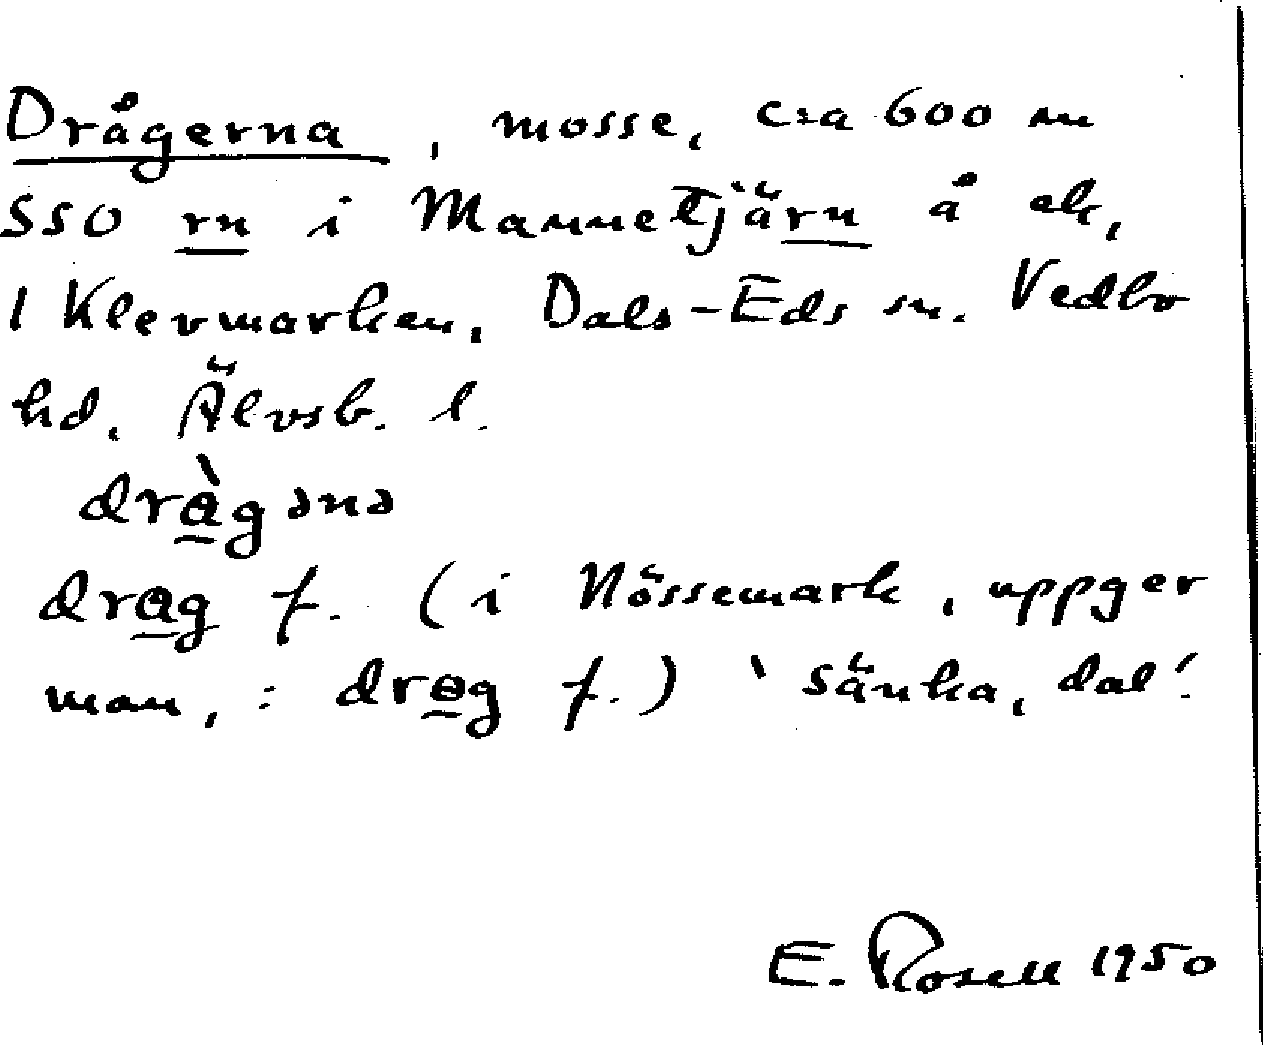 Drågerna, mosse, c:a 600 m
SSO rn i Mannetjärn å ek,
1 Klevmarken, Dals-Eds sn. Vedbo
hd. Älvsb. l.
dràgənə
drag f. (i Nössemark, uppger
man, : drɵg f.) ‵sänka, dal′.
E. Rosell 1950